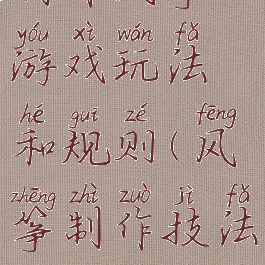 yóu xì wán fǎ
游戏玩法
hé guī zé fēng
和规则(风
zhēng zhì zuò jì fǎ
筝制作技法